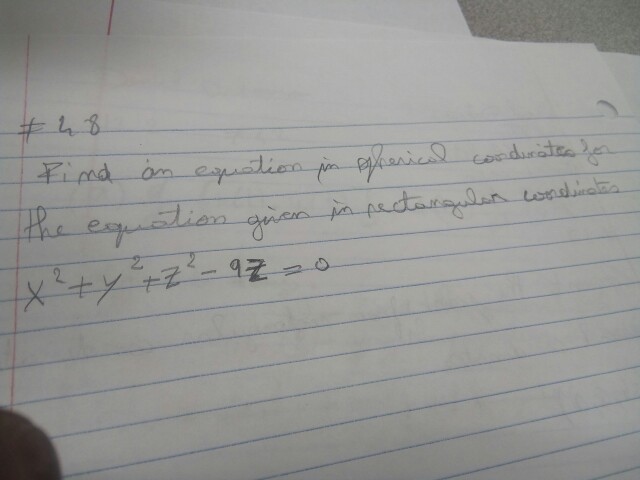 # 48
Find an equation in spherical coordinates for
the equation given in rectangular coordinates
x² + y² + z² - 9z = 0